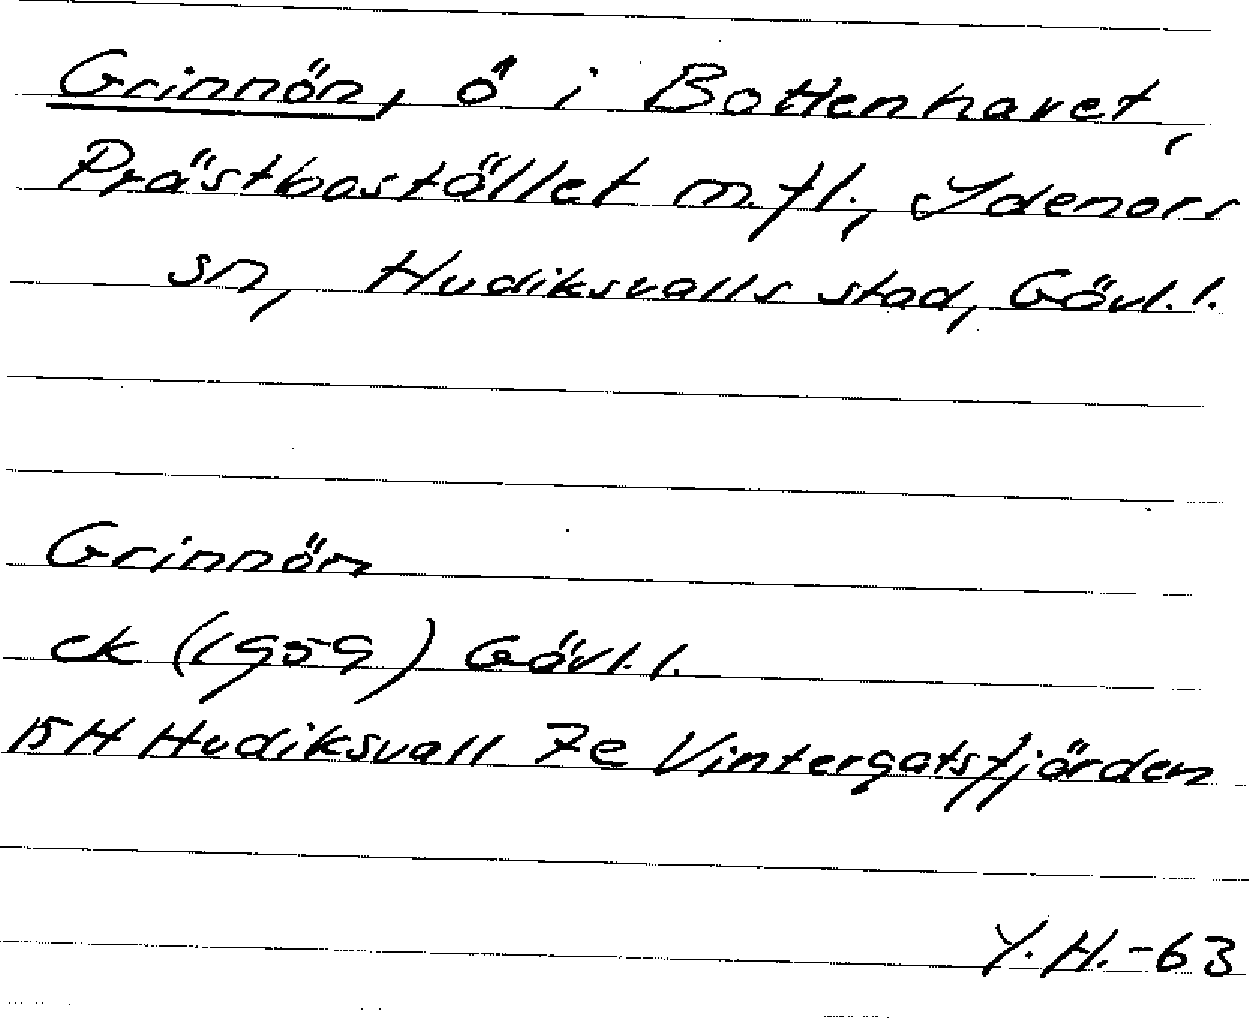 Grinnön, ö i Bottenhavet,
Prästbostället m.fl., Idenors
sn, Hudiksvalls stad, Gävl.l.
Grinnön
ek (1959) Gävl.l.
15H Hudiksvall 7e Vintergatsfjärden
Y.H.-63